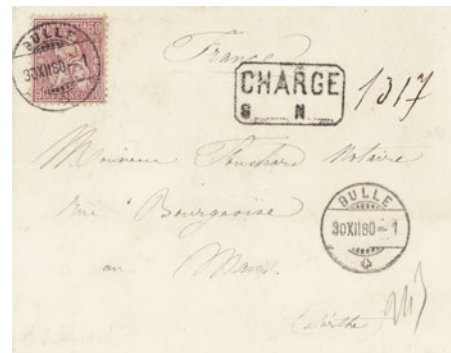 BULLE
30XII80-1
FRANCO
France
CHARGE
S N
1317
Monsieur Fouchard Notaire
rue Bourgeoise
au Mans
(Sarthe)
BULLE
30XII80-1